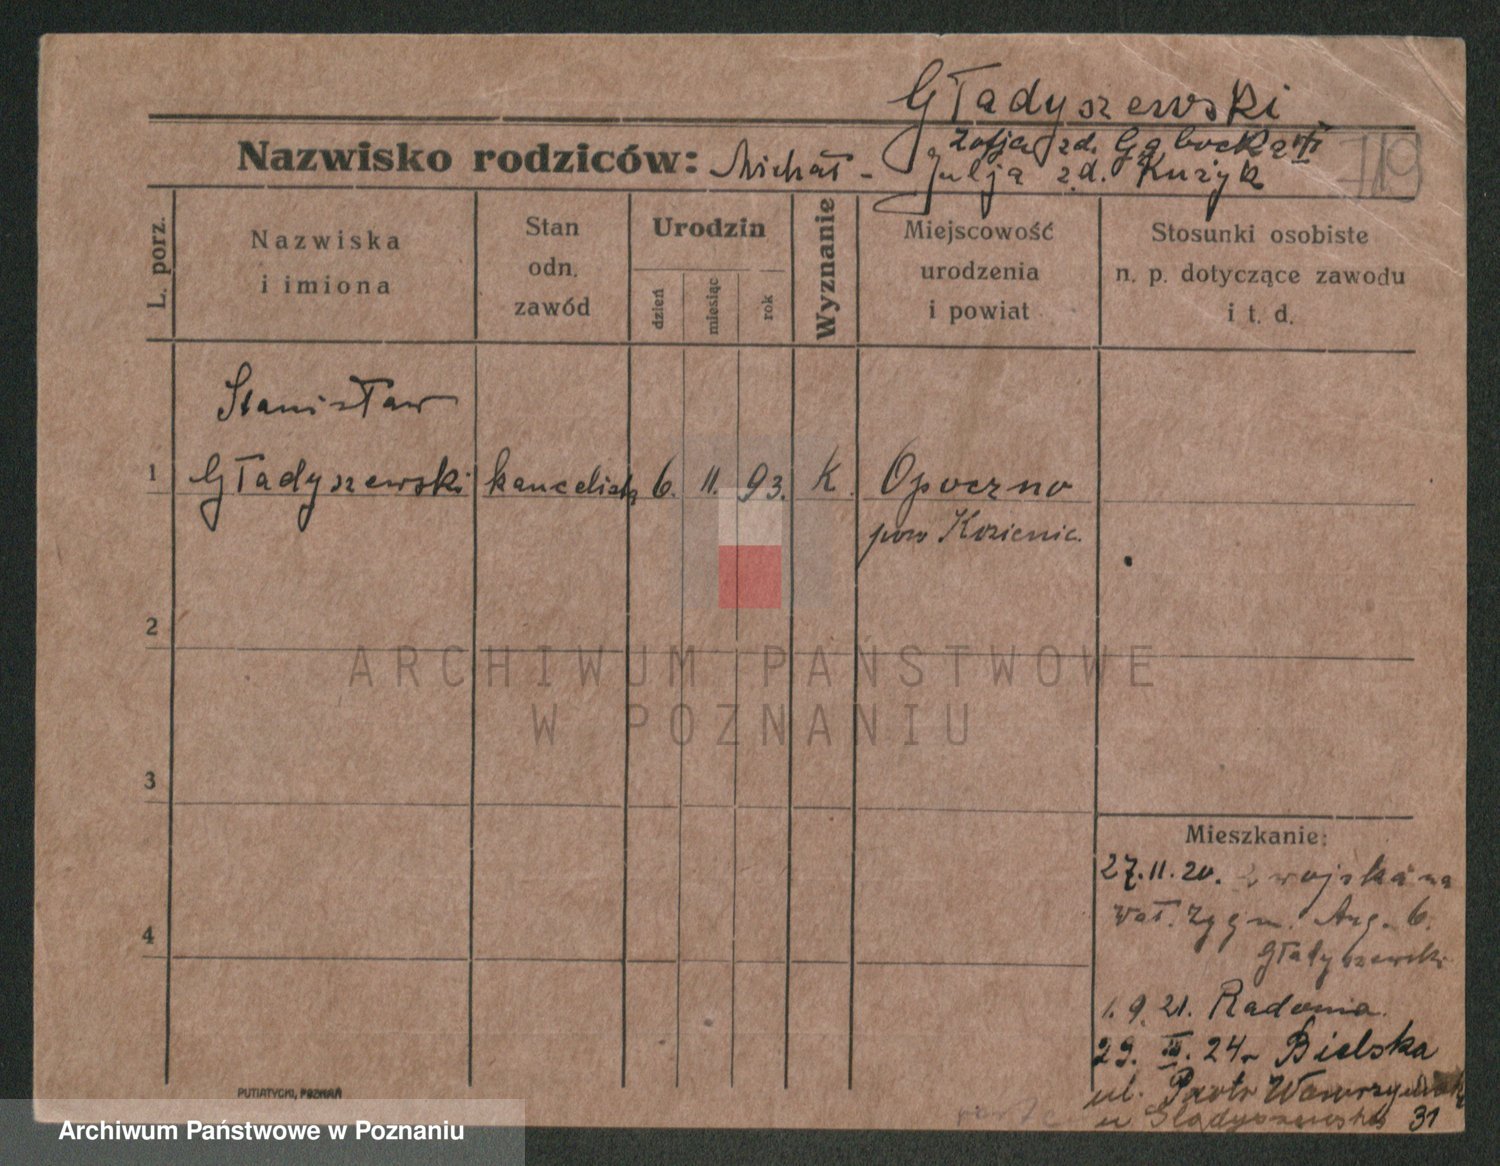 Gładyszewski
Zofja zd. Gębocka II/
Nazwisko rodziców: Michał - Julja z d. Kużyk
719
L. porz.
Nazwiska
i imiona
Stan
odn.
zawód
Urodzin
dzień
miesiąc
rok
Wyznanie
Miejscowość
urodzenia
i powiat
Stosunki osobiste
n. p. dotyczące zawodu
i t. d.
Stanisław
1 Gładyszewski kancelista 6. 11. 93. K. Opoczno
pow Kozienic.
2
ARCHIWUM PAŃSTWOWE
W POZNANIU
3
Mieszkanie:
27.11.20. z wojska na
Wał. Zygm. Aug. 6.
4
Gładyszewski
1. 9. 21. Radomia.
29. III. 24. Bielska
ul. Piotr Wawrzyniaka
u Gładyszewska 31
PUTIATYCKI, POZNAŃ
Archiwum Państwowe w Poznaniu